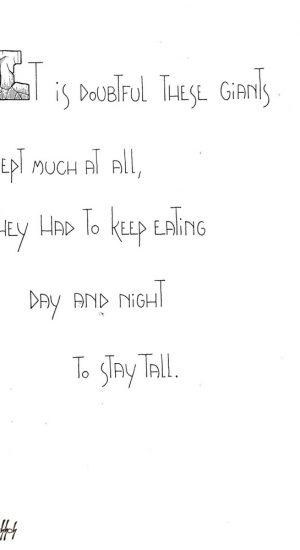 IT is DOUBTFUL THESE GiANTS
EPT MUCH AT All,
HEY HAD To kEEP EATiNG
DAY AND NiGHT
To STAY TAll.